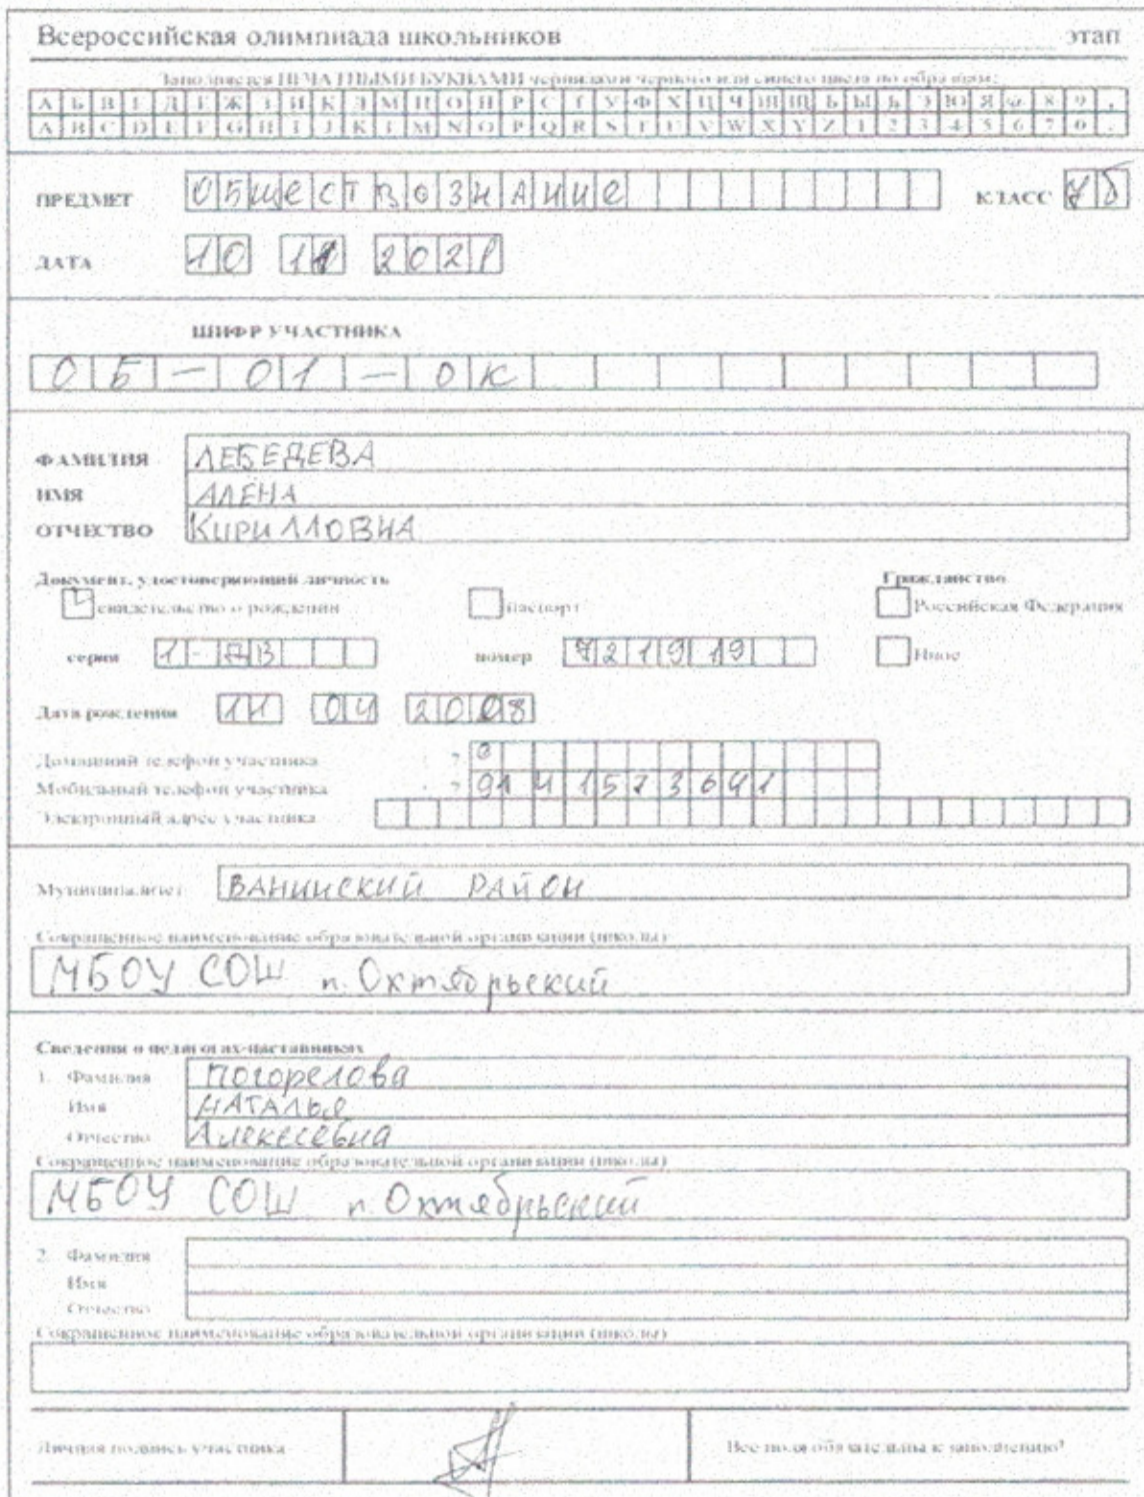 Всероссийская олимпиада школьников этап
Заполняется ПЕЧАТНЫМИ БУКВАМИ чернилами черного или синего цвета по образцам:
А Б В Г Д Е Ж З И К Л М Н О П Р С Т У Ф Х Ц Ч Ш Щ Ь Ы Ъ Э Ю Я @ 8 9 ,
A B C D E F G H I J K L M N O P Q R S T U V W X Y Z 1 2 3 4 5 6 7 0 .
ПРЕДМЕТ ОБЩЕСТВОЗНАНИЕ КЛАСС 7б
ДАТА 10 11 2021
ШИФР УЧАСТНИКА
ОБ — 01 — ОК
ФАМИЛИЯ ЛЕБЕДЕВА
ИМЯ АЛЕНА
ОТЧЕСТВО КИРИЛЛОВНА
Документ, удостоверяющий личность Гражданство
свидетельство о рождении паспорт Российская Федерация
серия номер Иное
Дата рождения 04 2008
Домашний телефон участника
Мобильный телефон участника
Электронный адрес участника
Муниципалитет ВАНИНСКИЙ РАЙОН
Сокращенное наименование образовательной организации (школы)
МБОУ СОШ п. Октябрьский
Сведения о педагогах-наставниках
1. Фамилия Погорелова
Имя НАТАЛЬЯ
Отчество Алексеевна
Сокращенное наименование образовательной организации (школы)
МБОУ СОШ п. Октябрьский
2. Фамилия
Имя
Отчество
Сокращенное наименование образовательной организации (школы)
Личная подпись участника Все поля обязательны к заполнению!